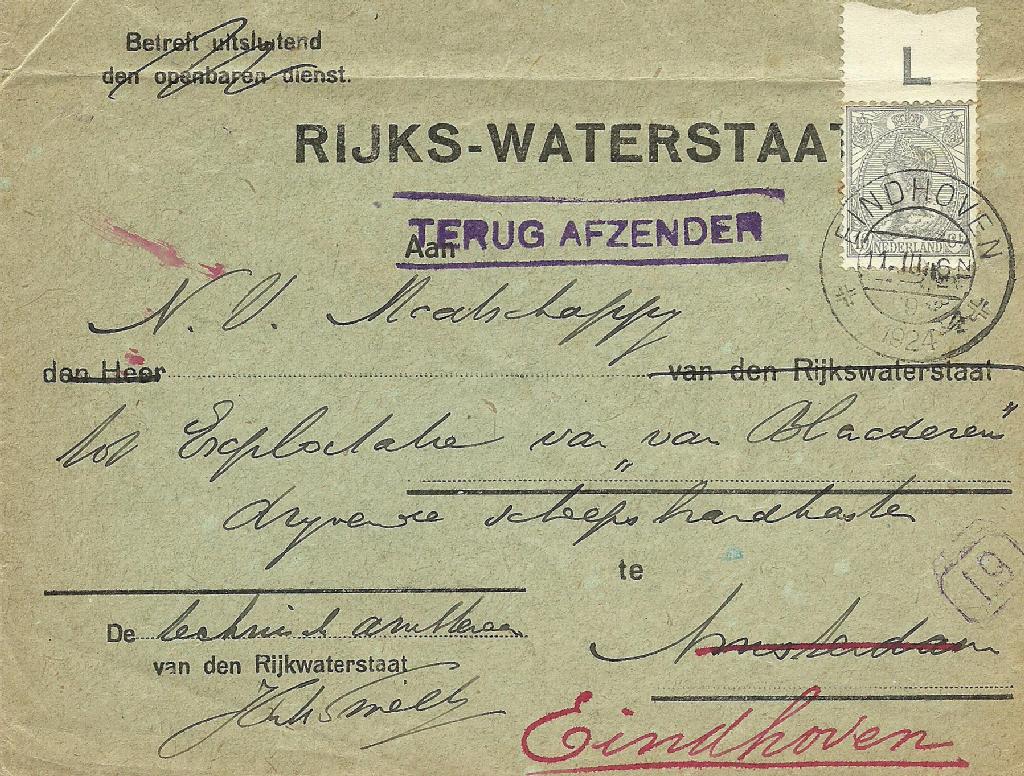 Betreft uitsluitend
den openbaren dienst.
L
RIJKS-WATERSTAAT
TERUG AFZENDER
Aan
EINDHOVEN
NEDERLAND
1924
N. V. Maatschappy
den Heer van den Rijkswaterstaat
tot Exploitatie van "van Blaaderen"
dryvende scheepshandkasten
te
19
De technisch ambtenaar
van den Rijkwaterstaat
Amsterdam
Eindhoven